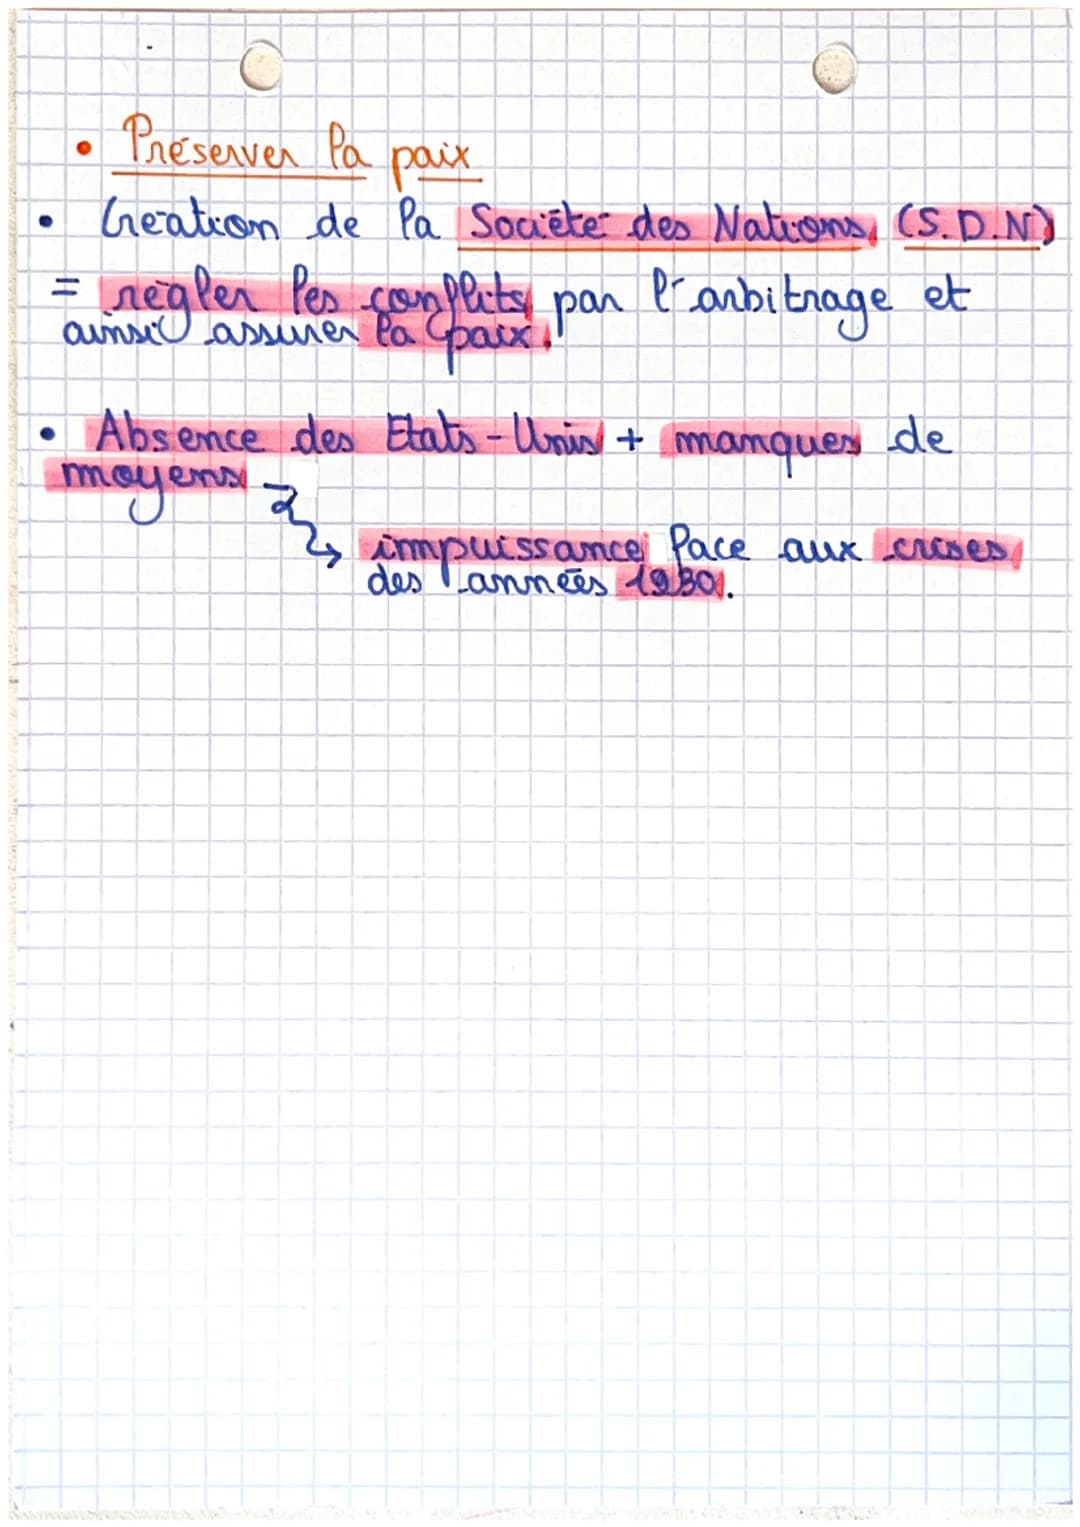 • Préserver la paix
• Création de la Société des Nations (S.D.N)
= régler les conflits par l'arbitrage et
ainsi assurer la paix.
• Absence des Etats-Unis + manques de
moyens
↳ impuissance face aux crises
des années 1930.